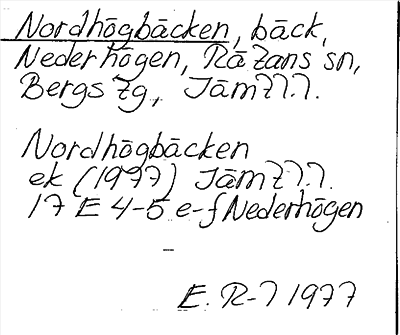 Nordhögbäcken, bäck,
Nederhögen, Rätans sn,
Bergs tg, Jämtl.l.
Nordhögbäcken
ek (1977) Jämtl.l.
17 E 4-5 e-f Nederhögen
–
E. R-l 1977